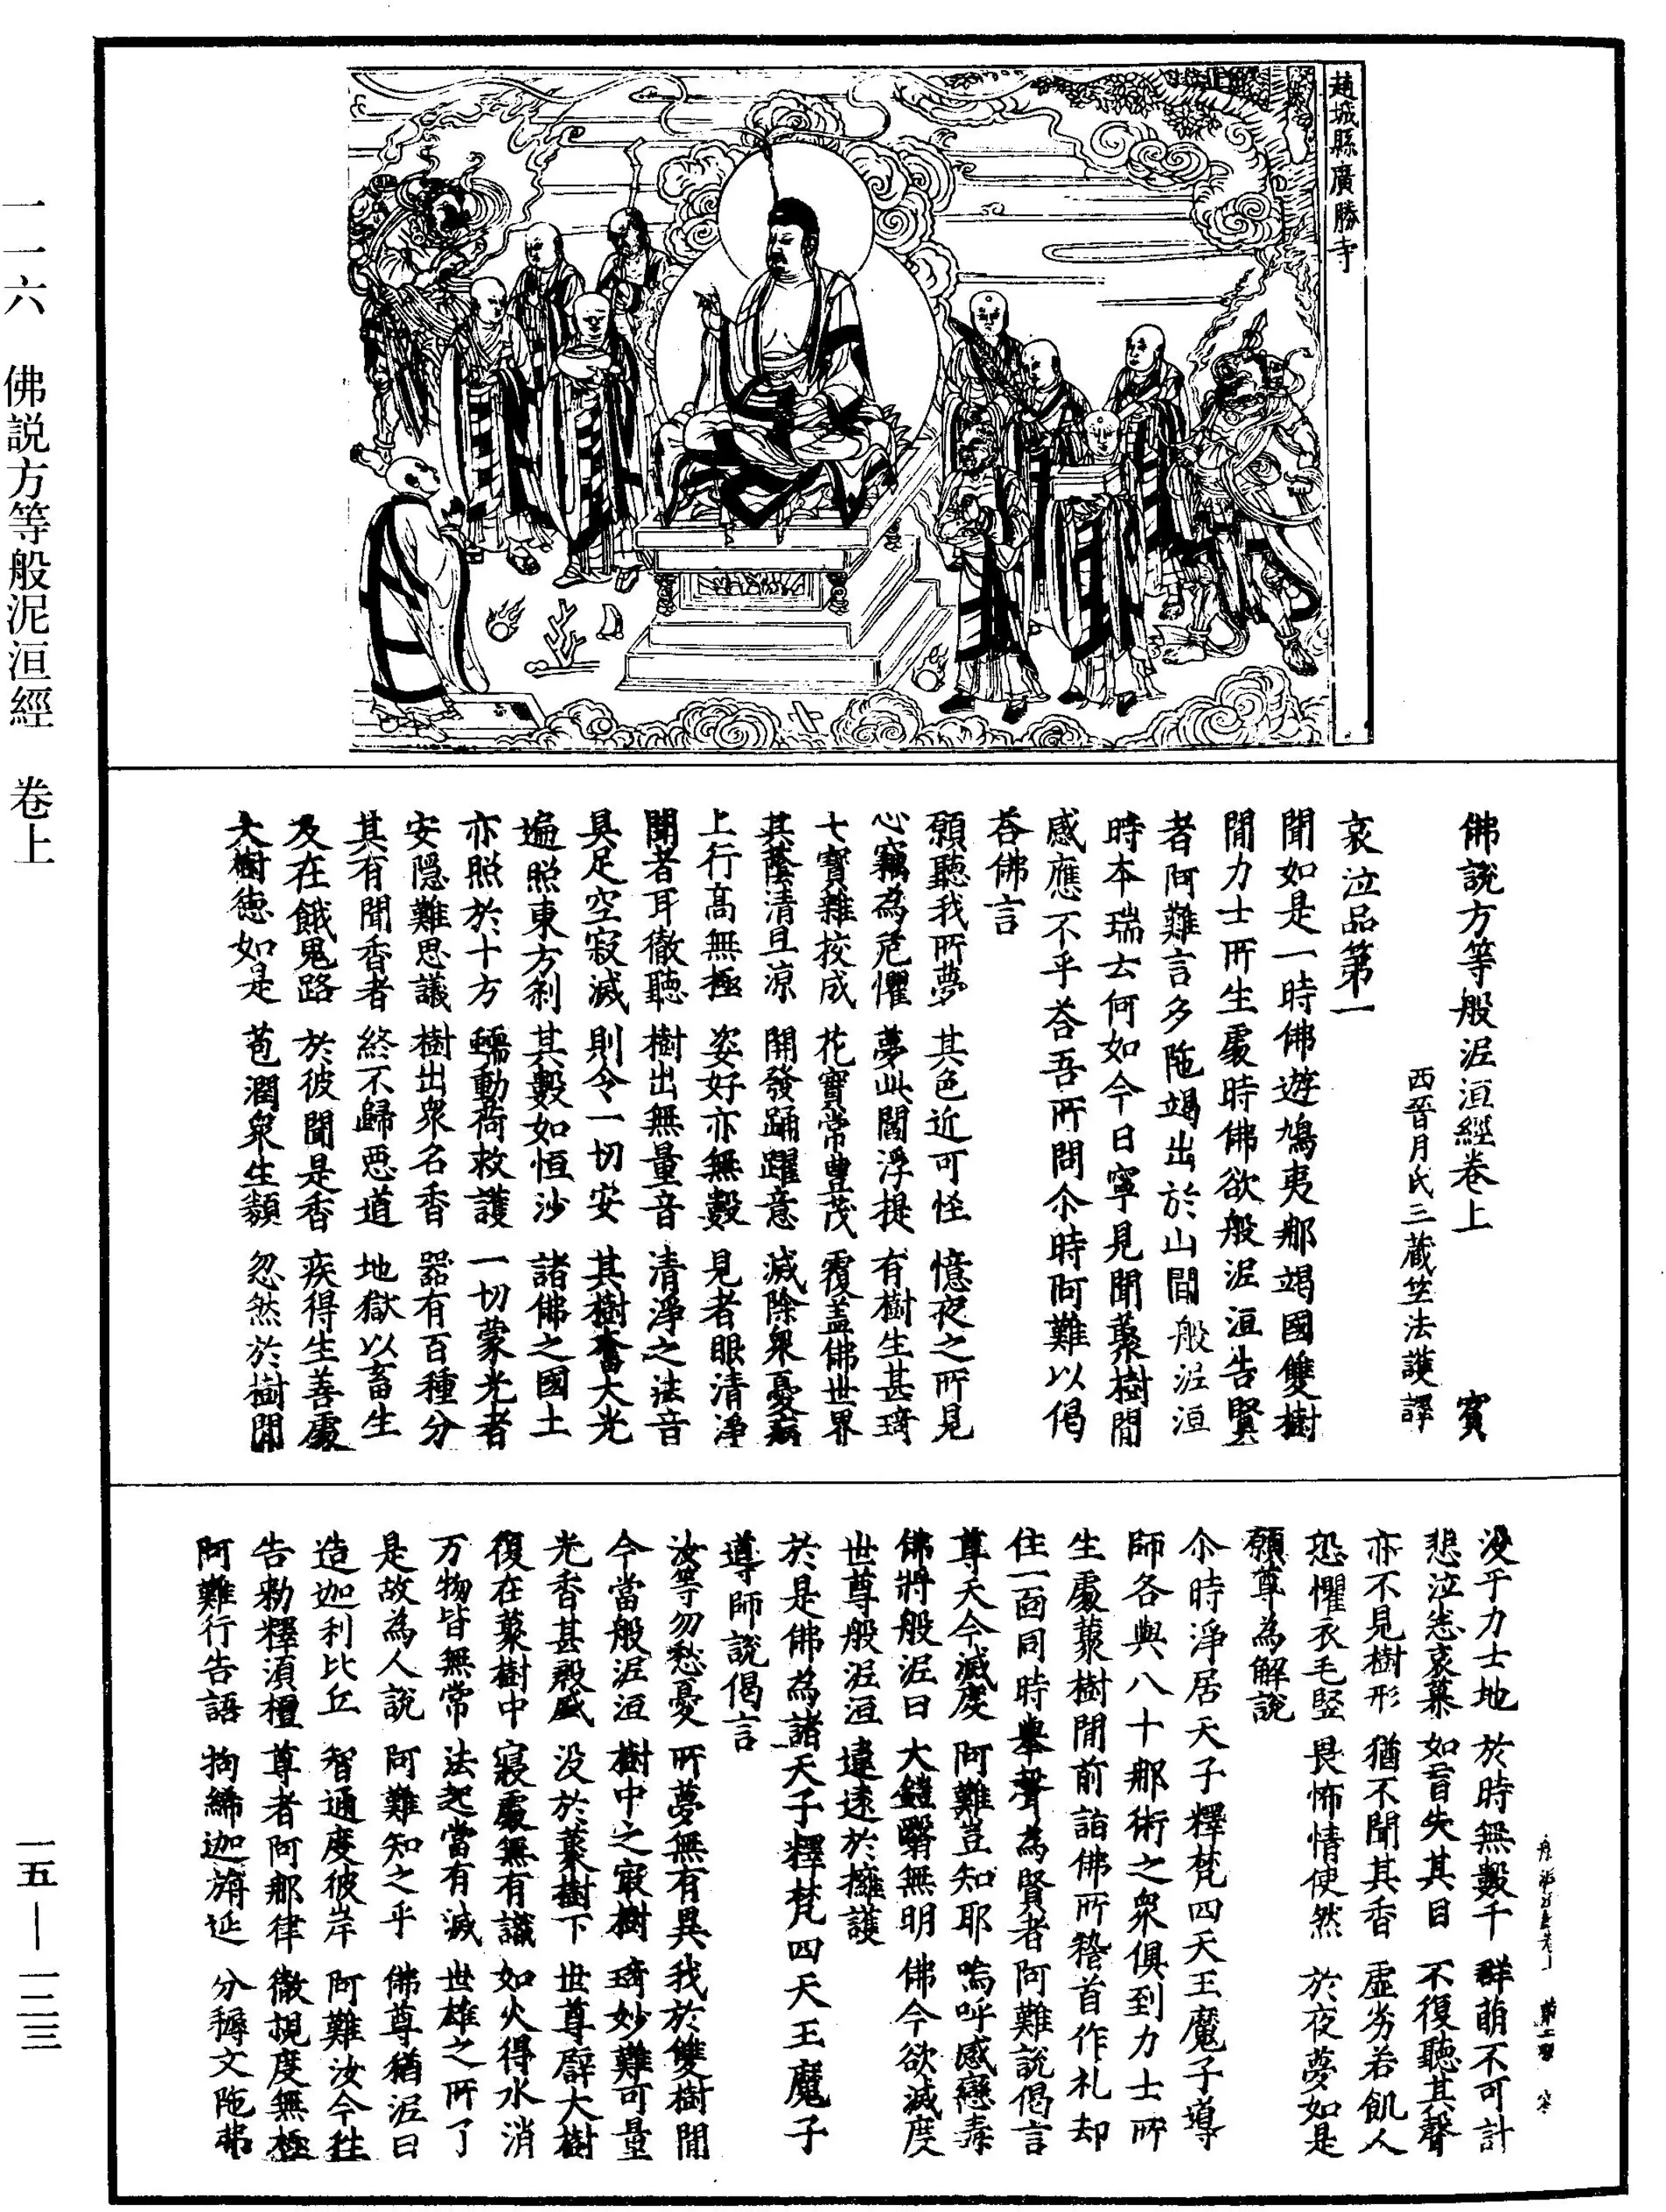 趙城縣廣勝寺
佛說方等般泥洹經卷上 賓
西晉月氏三藏竺法護譯
哀泣品第一
聞如是一時佛遊鳩夷那竭國雙樹
閒力士所生處時佛欲般泥洹告賢
者阿難言多陁竭出於山間般泥洹
時本瑞云何如今日寧見聞藂樹閒
感應不乎荅吾所問尒時阿難以偈
荅佛言
願聽我所夢 其色近可怪 憶夜之所見
心竊為危懼 夢此閻浮提 有樹生甚琦
七寶雜挍成 花實常豊茂 覆盖佛世界
其蔭清且凉 開發踊躍意 滅除衆憂病
上行高無極 姿好亦無數 見者眼清淨
聞者耳徹聽 樹出無量音 清淨之法音
具足空寂滅 則令一切安 其樹奮大光
遍照東方剎 其數如恒沙 諸佛之國土
亦照於十方 蠕動荷救護 一切蒙光者
安隱難思議 樹出衆名香 器有百種分
其有聞香者 終不歸惡道 地獄以畜生
及在餓鬼路 於彼聞是香 疾得生善處
大樹德如是 苞潤衆生類 忽然於樹閒
没于力士地 於時無數千 群萌不可計
悲泣悲哀慕 如盲失其目 不復聽其聲
亦不見樹形 猶不聞其香 虛劣若飢人
恐懼衣毛竪 畏怖情使然 於夜夢如是
願尊為解說
尒時淨居天子釋梵四天王魔子導
師各與八十那術之衆俱到力士所
生處藂樹閒前詣佛所稽首作礼却
住一面同時舉聲為賢者阿難說偈言
尊天今滅度 阿難豈知耶 嗚呼感戀毒
佛將般泥曰 大鎧翳無明 佛今欲滅度
世尊般泥洹 違遠於擁護
於是佛為諸天子釋梵四天王魔子
導師說偈言
汝等勿愁憂 所夢無有異 我於雙樹閒
今當般泥洹 樹中之寂樹 琦妙難可量
光香甚殷盛 没於藂樹下 世尊辟大樹
復在藂樹中 寢處無有識 如火得水消
万物皆無常 法起當有滅 世雄之所了
是故為人說 阿難知之乎 佛尊猶泥曰
造迦利比丘 智通度彼岸 阿難汝今往
告勑釋湏檀 尊者阿那律 徹視度無極
阿難行告語 拘絺迦旃延 分耨文陁弗
一一六 佛説方等般泥洹經 卷上
一五—一二三